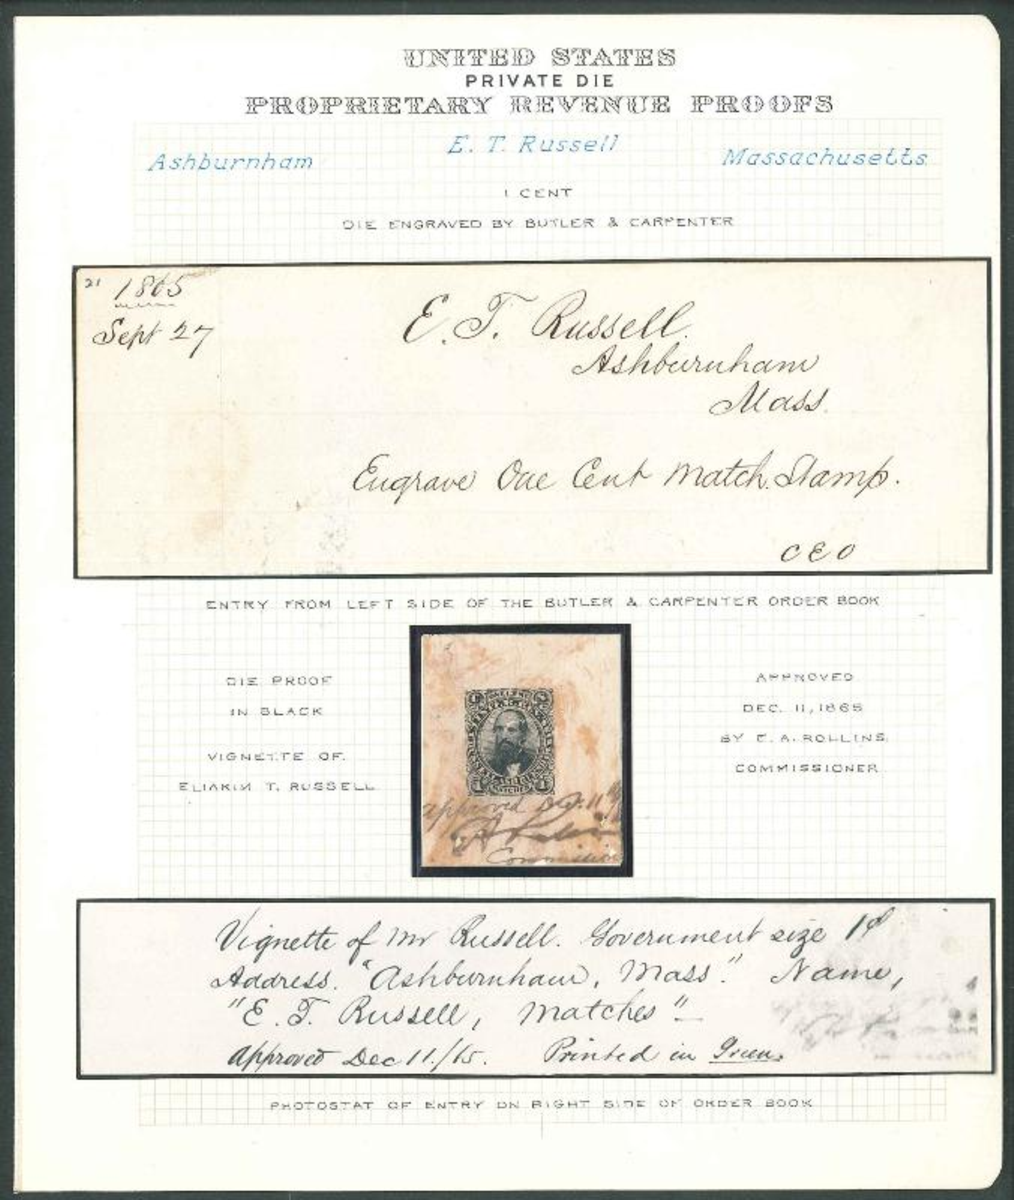 UNITED STATES
PRIVATE DIE
PROPRIETARY REVENUE PROOFS
E. T. Russell
Ashburnham
Massachusetts
1 CENT
DIE ENGRAVED BY BUTLER & CARPENTER
21 1865
Sept 27
E. T. Russell.
Ashburnham
Mass.
Engrave One Cent Match Stamp.
C E O
ENTRY FROM LEFT SIDE OF THE BUTLER & CARPENTER ORDER BOOK
DIE PROOF
IN BLACK
VIGNETTE OF
ELIAKIM T. RUSSELL
MATCHES
approved Dec. 11
Commissioner
APPROVED
DEC. 11, 1865
BY E. A. ROLLINS
COMMISSIONER
Vignette of Mr Russell. Government size 1¢
Address. "Ashburnham, Mass". Name,
"E. T. Russell, Matches"
Approved Dec 11/65. Printed in Green.
PHOTOSTAT OF ENTRY ON RIGHT SIDE OF ORDER BOOK